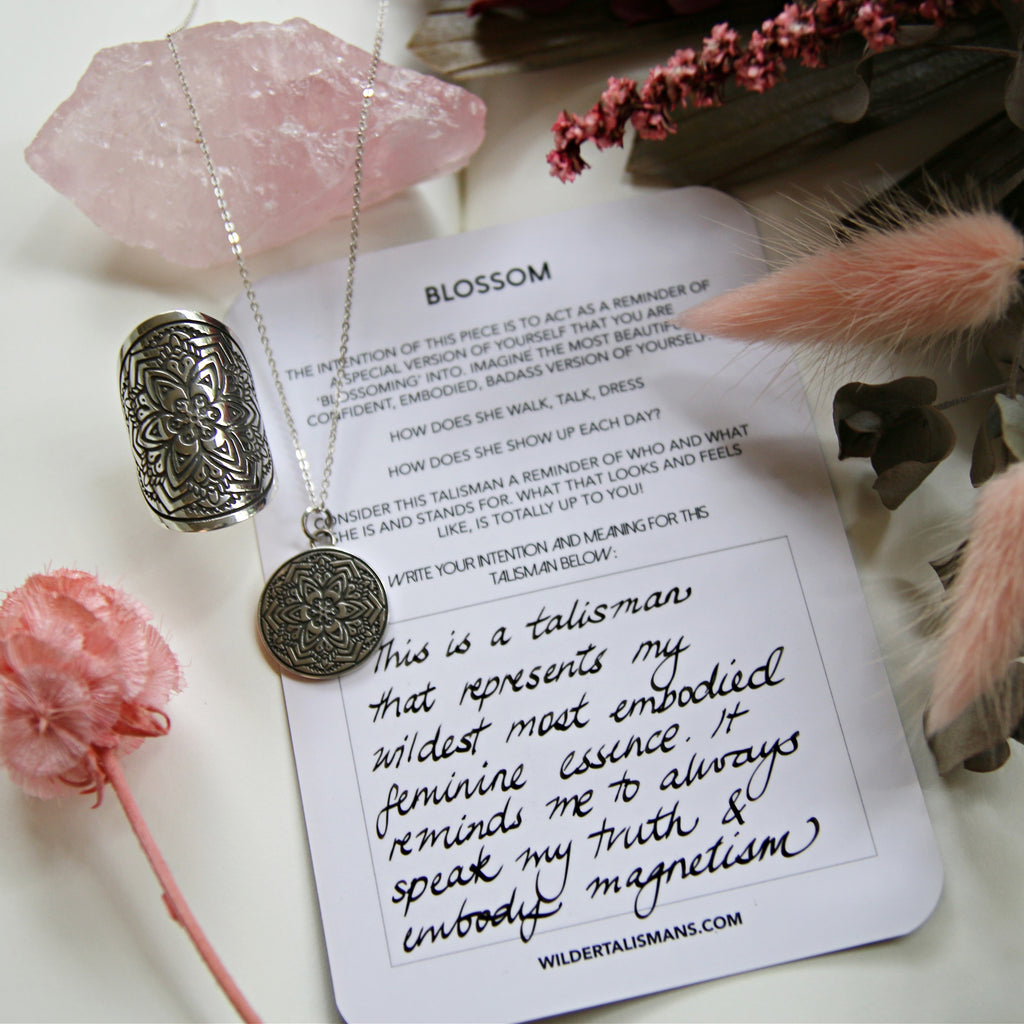 BLOSSOM
THE INTENTION OF THIS PIECE IS TO ACT AS A REMINDER OF
A SPECIAL VERSION OF YOURSELF THAT YOU ARE
'BLOSSOMING' INTO. IMAGINE THE MOST BEAUTIFUL
CONFIDENT, EMBODIED, BADASS VERSION OF YOURSELF.
HOW DOES SHE WALK, TALK, DRESS
HOW DOES SHE SHOW UP EACH DAY?
CONSIDER THIS TALISMAN A REMINDER OF WHO AND WHAT
SHE IS AND STANDS FOR. WHAT THAT LOOKS AND FEELS
LIKE, IS TOTALLY UP TO YOU!
WRITE YOUR INTENTION AND MEANING FOR THIS
TALISMAN BELOW:
This is a talisman
that represents my
wildest most embodied
feminine essence. It
reminds me to always
speak my truth &
embody magnetism
WILDERTALISMANS.COM